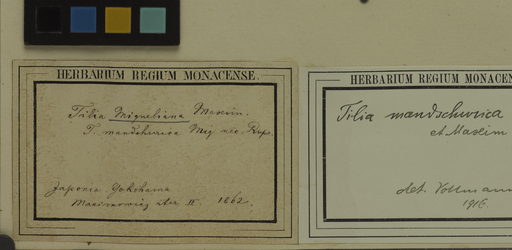 HERBARIUM REGIUM MONACENSE.
Tilia Miqueliana Maxim.
T. mandschurica Miq nec. Rupr.
Japonia Yokohama
Maximowicz iter II 1862.
HERBARIUM REGIUM MONACEN
Tilia mandschurica
et Maxim
det. Vollmann
1916